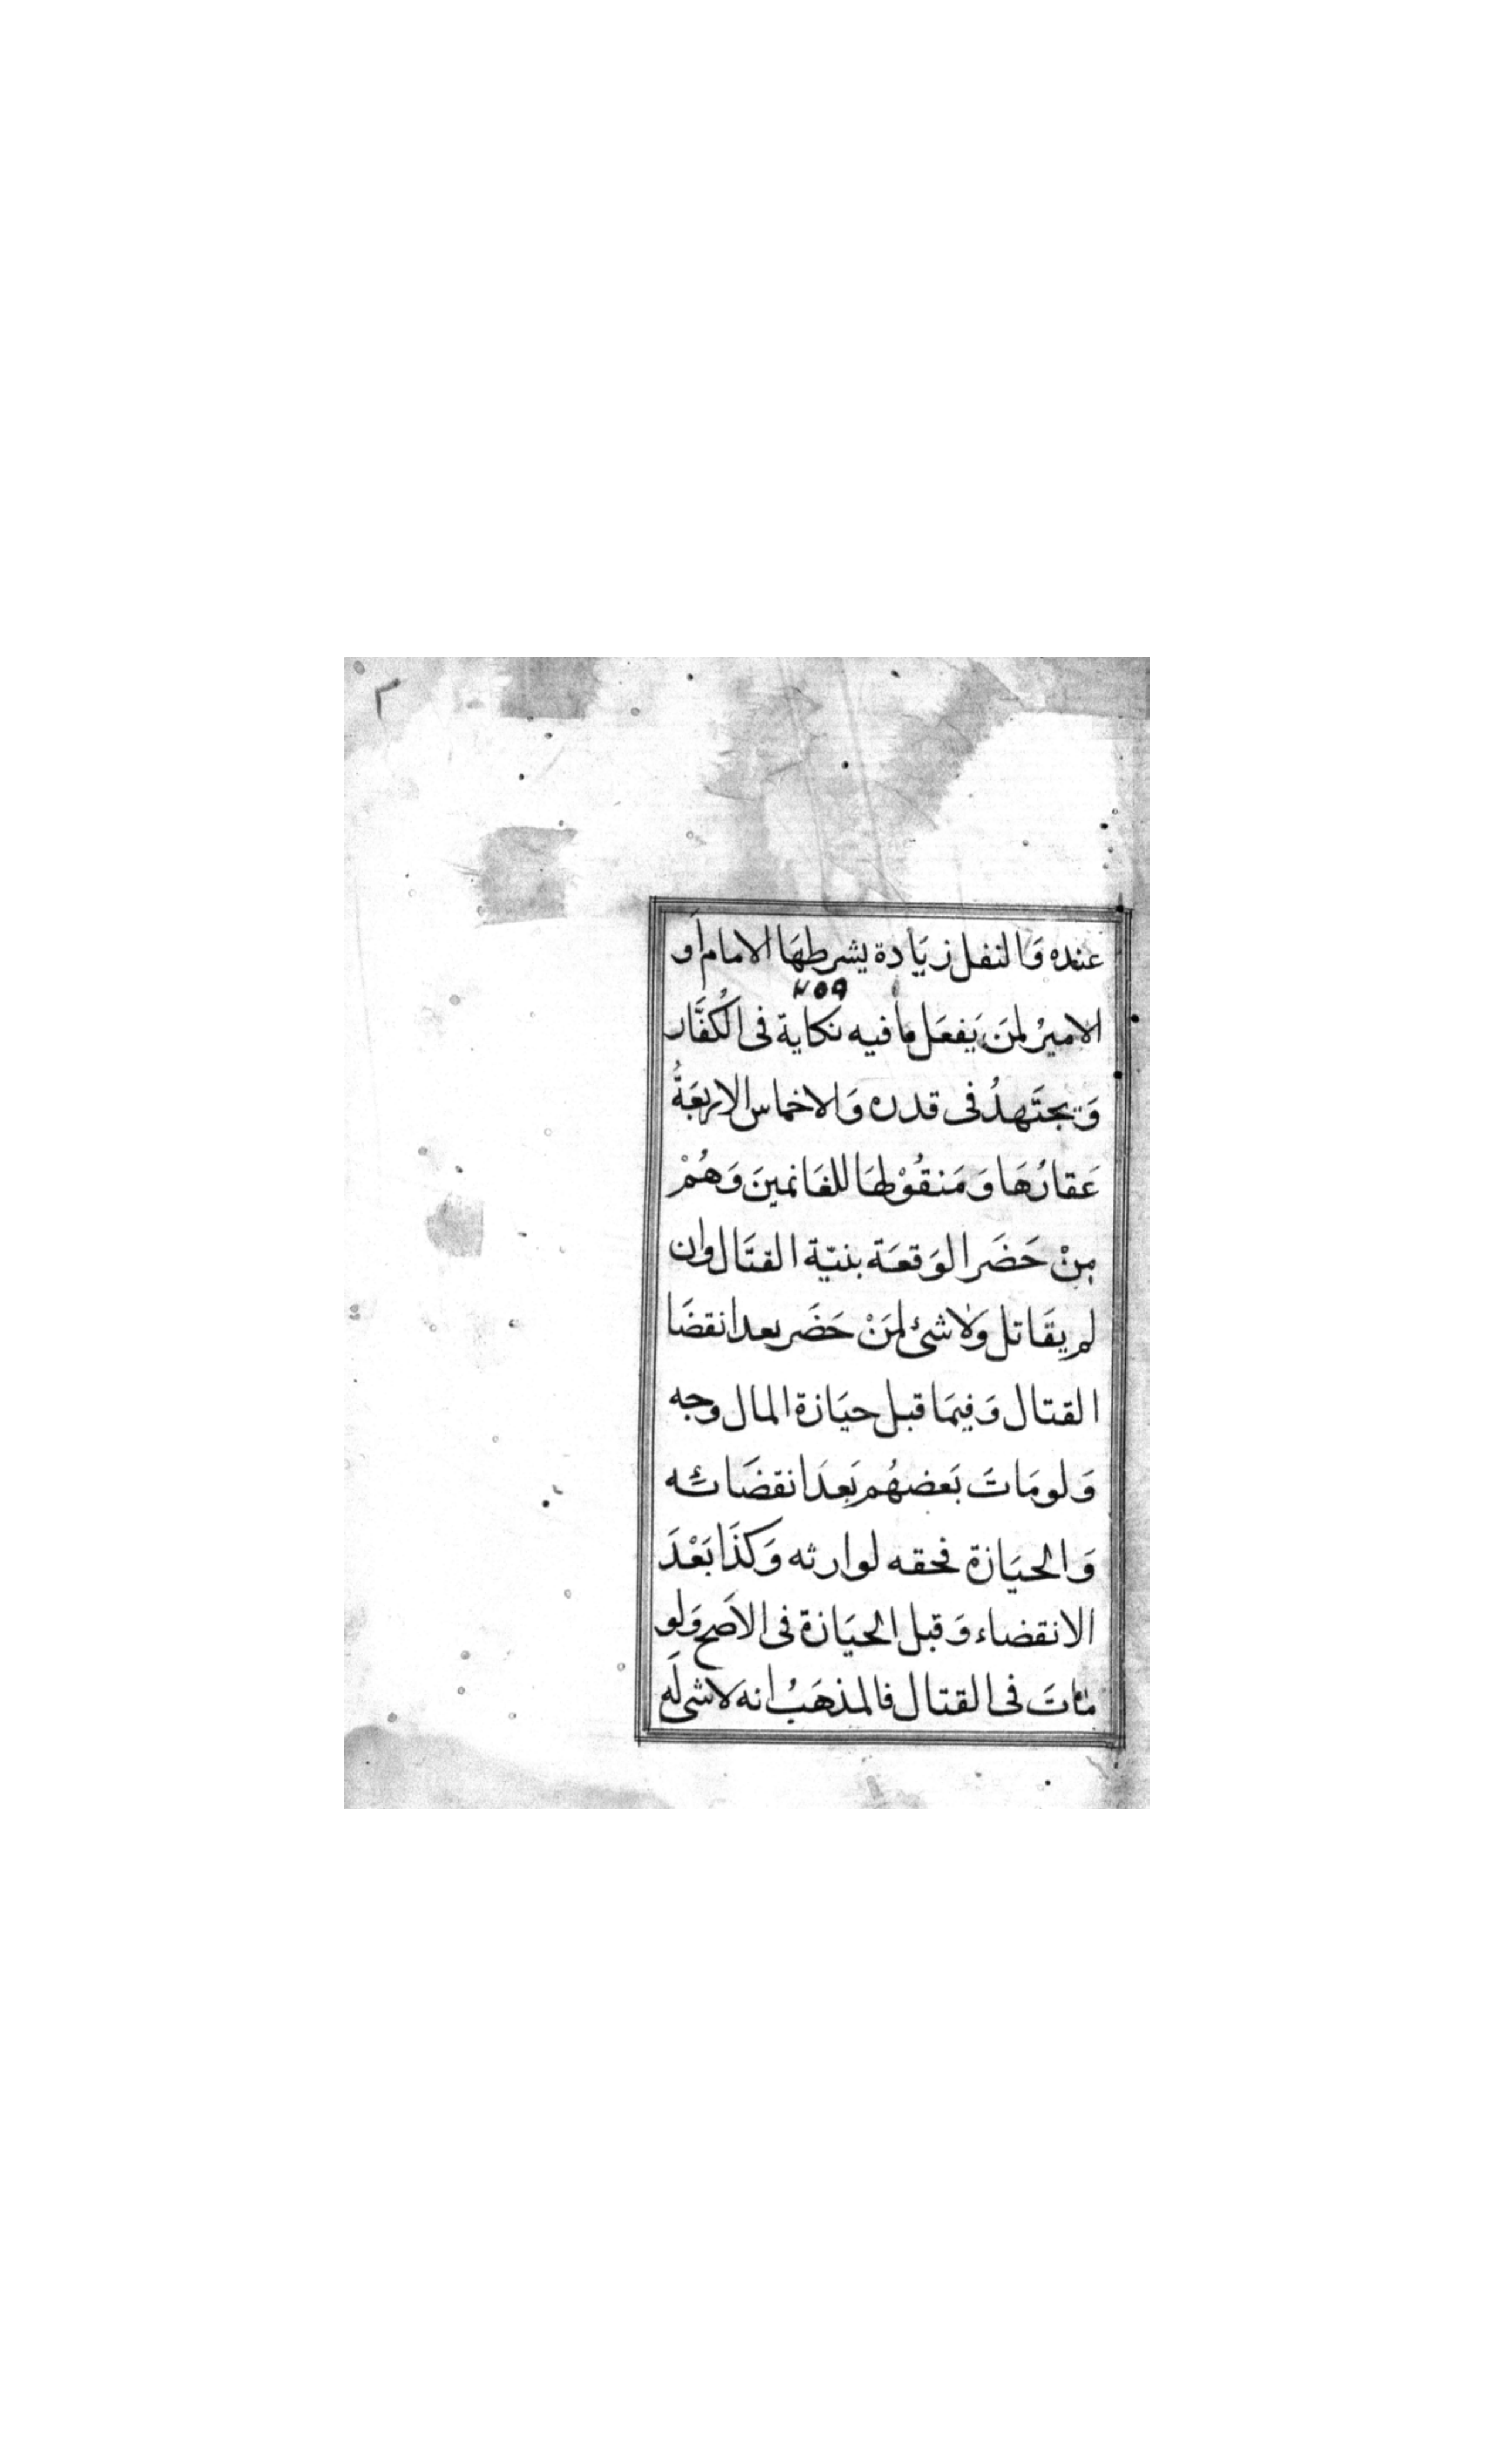 ٢
عنده وَالنفل زيَادة يشرطهَا الامام أو
٢٥٩
الاميرُ لمنَ يَفعَل ما فيه نكاية فى الكُفَّار
وَيجتَهدُ فى قدره وَالاخماس الاربعَةُ
عَقارُهَا وَمَنقُوْلهَا للغَانمينَ وَهُمْ
مِنْ حَضَر الوَقعَة بنيّة القتَال وان
لم يقَاتل وَلاشئ لمَنْ حَضَر بعد انقضَا
القتال وَفيمَا قبل حيَازة المال وجه
وَلو مَاتَ بَعضهُم بَعدَ انقضَائه
وَالحيَازة فحقه لوارثه وَكذَا بَعْدَ
الانقضاء وَقبل الحيَازة فى الاَصح وَلو
مَاتَ فى القتال فالمذهَبُ انه لاشى لَه